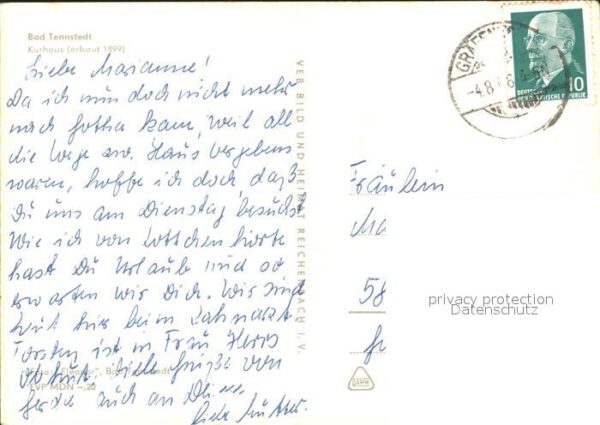 Bad Tennstedt
Kurhaus (erbaut 1899)
Liebe Marianne!
Da ich nun doch nicht mehr
nach Gotha kam, weil all
die Wege zu Haus vergebens
waren, hoffe ich doch, daß
Du uns am Dienstag besuchst
Wie ich von Lottchen hörte
hast Du Urlaub und so
erwarten wir Dich. Wir sind
heut hier beim Zahnarzt
Torsten ist in Frau Herrs
Obhut. Liebe Grüße von
auch an
Liebe Mutter.
EVP MDN -,20
VEB BILD UND HEIMAT REICHENBACH I. V.
DEUTSCHE
DEMOKRATISCHE REPUBLIK
10
Fräulein
Ma
58
privacy protection
Datenschutz
DAMW